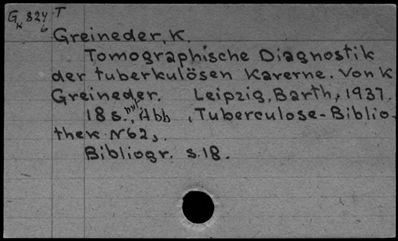 GK 824 T
6
Greineder, K.
Tomographische Diagnostik
der tuberkulösen Kaverne. Von K
Greineder. Leipzig, Barth, 1937.
18 s., Abb., Tuberculose-Biblio-
thek N62,.
Bibliogr. s.18.